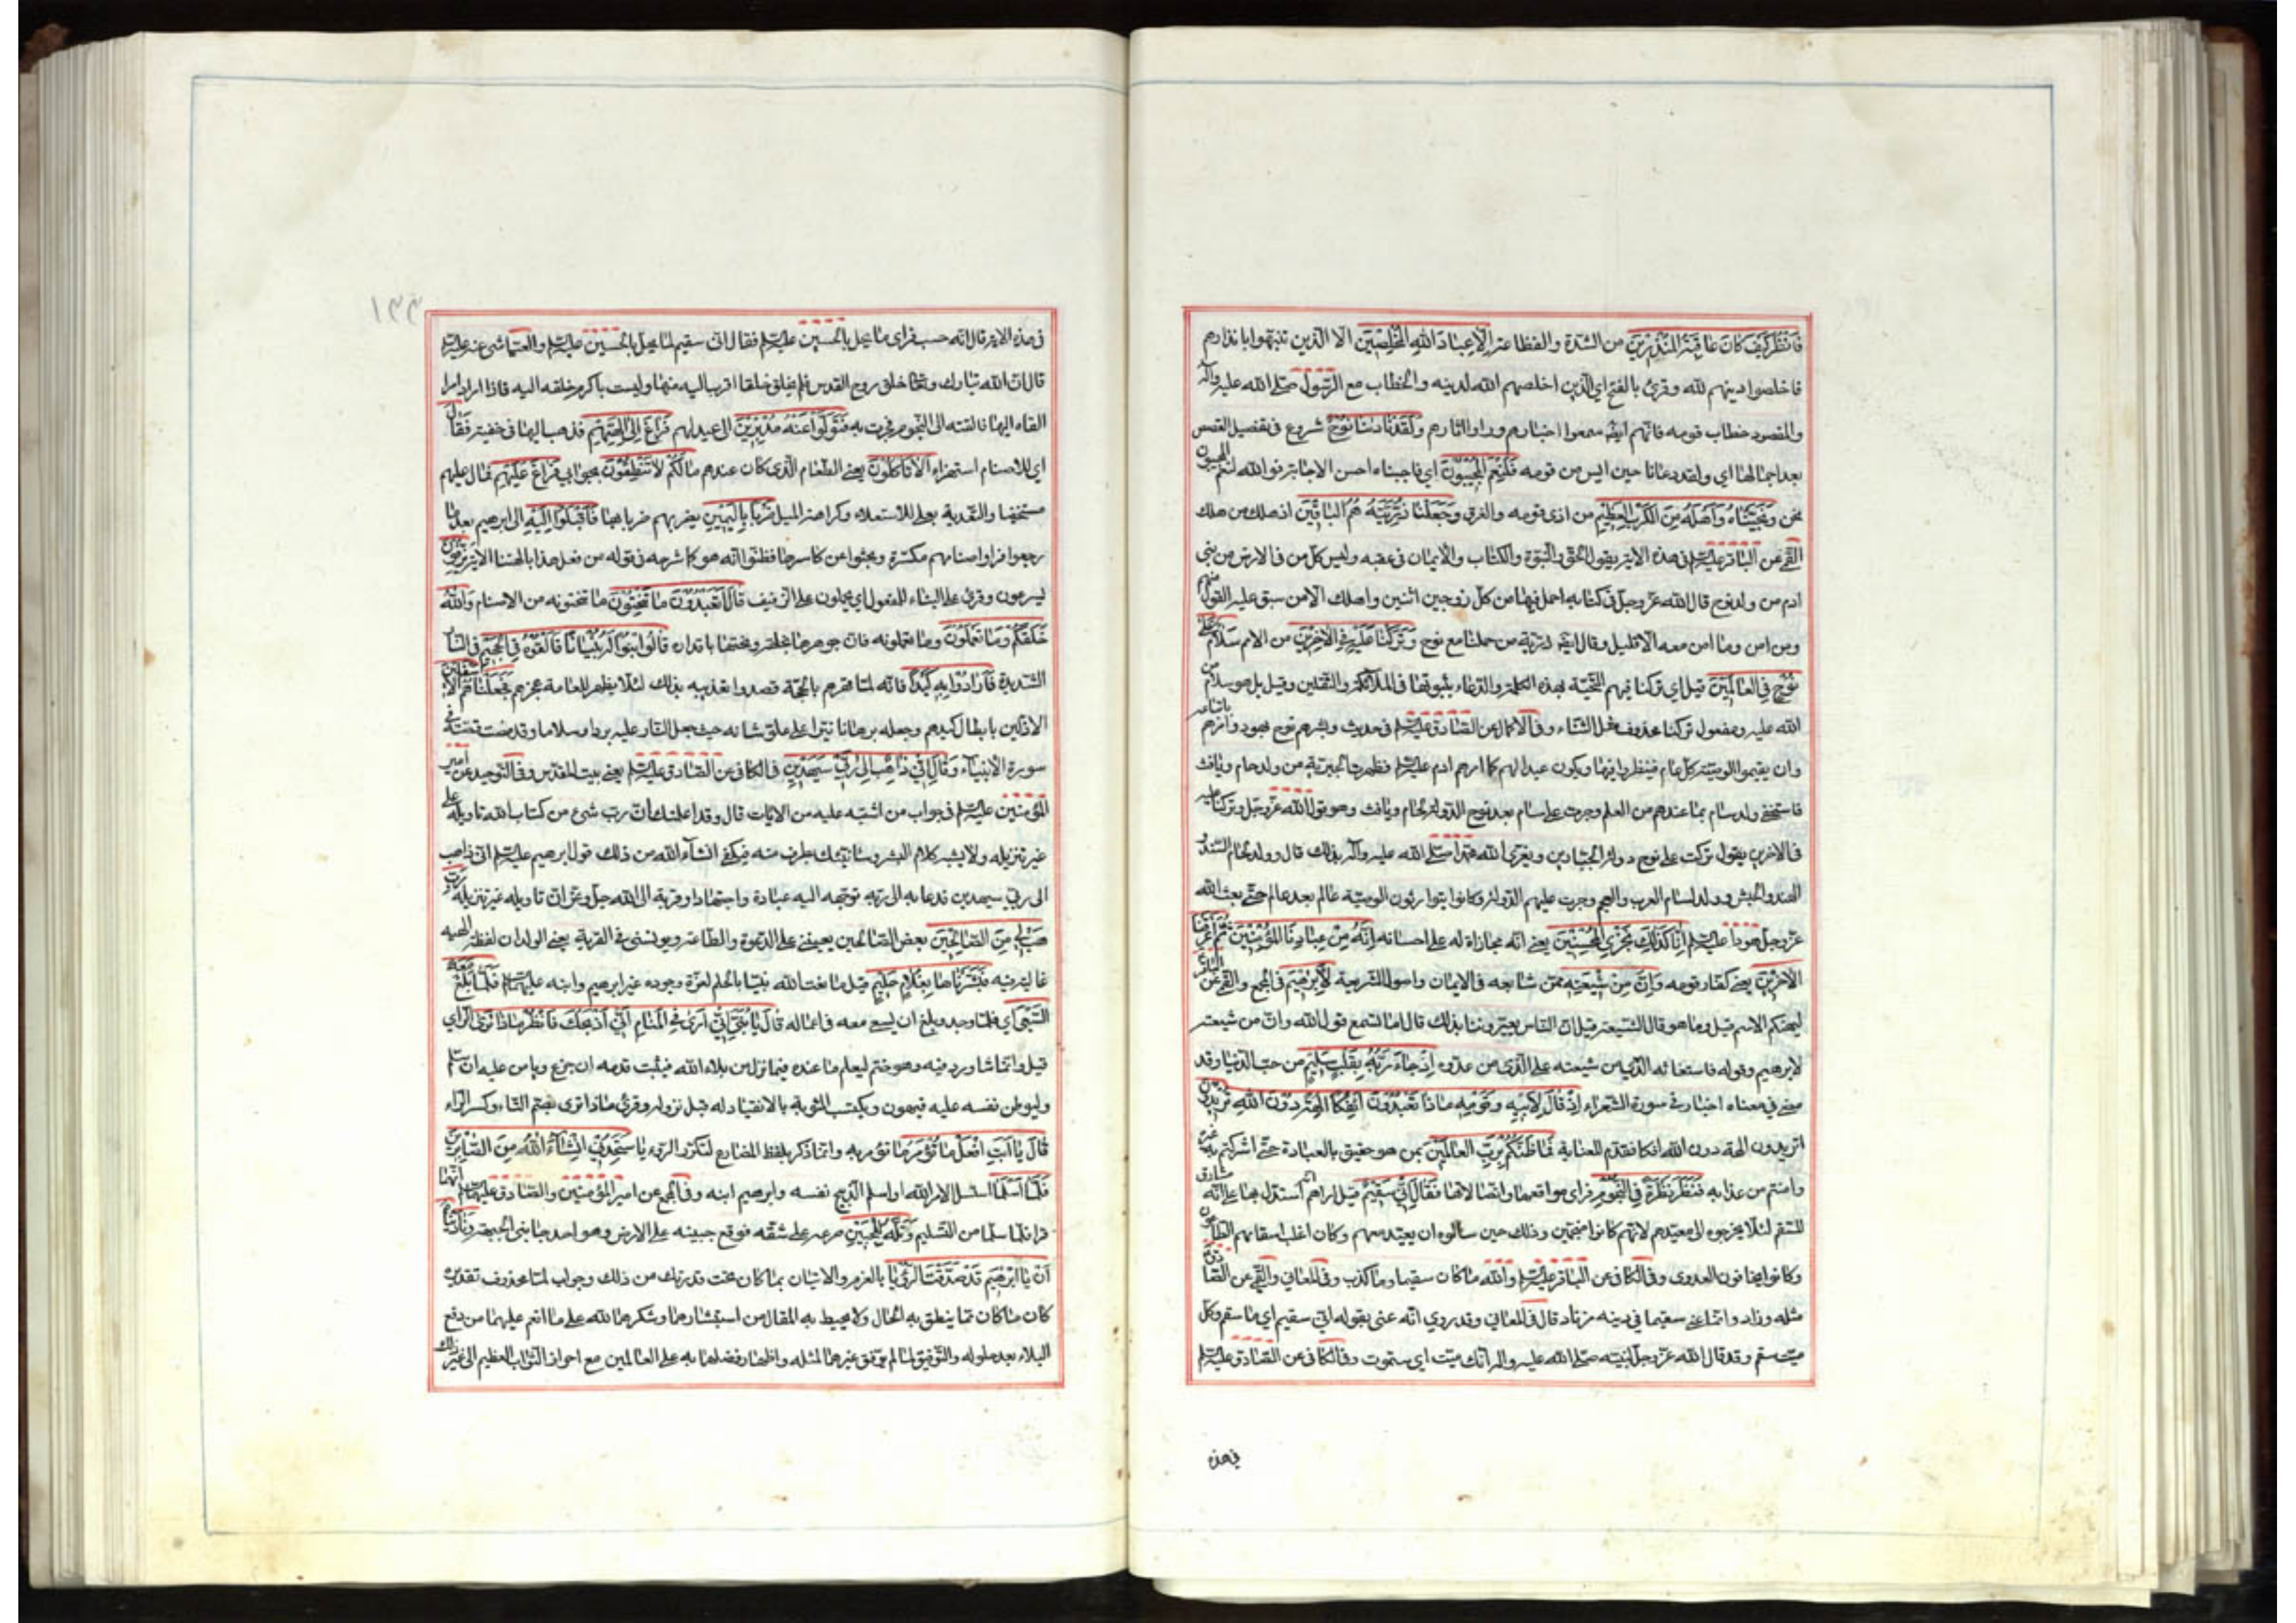 فَانْظُرْ كَيْفَ كَانَ عَاقِبَةُ الْمُنْذَرِينَ من الشدّة والفظاعة إِلَّا عِبَادَ اللَّهِ الْمُخْلَصِينَ الا الذين تنبهوا بانذارهم
فاخلصوا دينهم لله وقرئ بالفتح اي الذين اخلصهم الله لدينه والخطاب مع الرسول صلى الله عليه وآله
والمقصود خطاب قومه فانهم ايضا سمعوا اخبارهم وراوا اثارهم وَلَقَدْ نَادَانَا نُوحٌ شروع في تفصيل القصص
بعد اجمالها اي ولقد دعانا حين ايس من قومه فَلَنِعْمَ الْمُجِيبُونَ اي فاجبناه احسن الاجابة فوالله لنعم المجيبون
نحن وَنَجَّيْنَاهُ وَأَهْلَهُ مِنَ الْكَرْبِ الْعَظِيمِ من اذى قومه والغرق وَجَعَلْنَا ذُرِّيَّتَهُ هُمُ الْبَاقِينَ اذ هلك من هلك
القمي عن الباقر عليه السلم في هذه الاية يقول الحق والنبوة والكتاب والايمان في عقبه وليس كل من في الارض من بني
ادم من ولد نوح قال الله عز وجل في كتابه احمل فيها من كل زوجين اثنين واهلك الا من سبق عليه القول منهم
ومن امن وما امن معه الا قليل وقال ايضا ذرية من حملنا مع نوح وَتَرَكْنَا عَلَيْهِ فِي الْآخِرِينَ من الامم سَلَامٌ عَلَى
نُوحٍ فِي الْعَالَمِينَ قيل اي تركنا فيهم التحية بهذه الكلمة والدعاء بثبوتها في الملائكة والثقلين وقيل بل هو سلام من
الله عليه ومفعول تركنا محذوف مثل الثناء وفي الاكمال عن الصادق عليه السلم في حديث وبشرهم نوح بهود وامرهم باتباعه
وان يقيموا الوصية كل عام فينظروا فيها ويكون عيدا لهم كما امرهم ادم عليه السلم فظهرت الجبرية من ولد حام ويافث
فاستخفى ولد سام بما عندهم من العلم وجرت على سام بعد نوح الدولة لحام ويافث وهو قول الله عز وجل وتركنا عليه
في الاخرين يقول تركت على نوح دولة الجبارين ويعزي الله محمدا صلى الله عليه وآله بذلك قال وولد لحام السند و
الهند والحبش وولد لسام العرب والعجم وجرت عليهم الدولة وكانوا يتوارثون الوصية عالم بعد عالم حتى بعث الله
عز وجل هودا عليه السلم إِنَّا كَذَلِكَ نَجْزِي الْمُحْسِنِينَ يعني انه مجازاة له على احسانه إِنَّهُ مِنْ عِبَادِنَا الْمُؤْمِنِينَ ثُمَّ أَغْرَقْنَا
الْآخَرِينَ يعني كفار قومه وَإِنَّ مِنْ شِيعَتِهِ ممن شايعه في الايمان واصول الشريعة لَإِبْرَاهِيمَ في المجمع والقمي عن الباقر
ليهنكم الاسم قيل وما هو قال الشيعة قيل ان الناس يعيروننا بذلك قال اما تسمع قول الله وان من شيعته
لابرهيم وقوله فاستغاثه الذي من شيعته على الذي من عدوه إِذْ جَاءَ رَبَّهُ بِقَلْبٍ سَلِيمٍ من حب الدنيا وقد
مضى في معناه اخبار في سورة الشعراء إِذْ قَالَ لِأَبِيهِ وَقَوْمِهِ مَاذَا تَعْبُدُونَ أَئِفْكًا آلِهَةً دُونَ اللَّهِ تُرِيدُونَ
اتريدون الهة دون الله افكا فقدم للعناية فَمَا ظَنُّكُمْ بِرَبِّ الْعَالَمِينَ بمن هو حقيق بالعبادة حتى اشركتم به غيره
وامنتم من عذابه فَنَظَرَ نَظْرَةً فِي النُّجُومِ فراى مواقعها واتصالاتها فَقَالَ إِنِّي سَقِيمٌ قيل اراهم انه استدل بها على انه مشارف
للسقم لئلا يخرجوه الى معيدهم لانهم كانوا منجمين وذلك حين سالوه ان يعيد معهم وكان اغلب اسقامهم الطاعون
وكانوا يخافون العدوى وفي الكافي عن الباقر عليه السلم والله ما كان سقيما وما كذب وفي المعاني والقمي عن الصادق
مثله وزاد وانما عنى سقيما في دينه مرتادا قال في المعاني وقد روي انه عنى بقوله اني سقيم اي ساسقم وكل
ميت سقم وقد قال الله عز وجل لنبيه صلى الله عليه وآله انك ميت اي ستموت وفي الكافي عن الصادق عليه السلم
في هذه
١٣٣
في هذه الاية قال انه حسب فراى ما يحل بالحسين عليه السلم فقال اني سقيم لما يحل بالحسين عليه السلم والعياشي عنه عليه السلم
قال ان الله تبارك وتعالى خلق روح القدس فلم يخلق خلقا اقرب اليه منها وليست باكرم خلقه اليه فاذا اراد امرا
القاه اليها فالقته الى النجوم فجرت به فَتَوَلَّوْا عَنْهُ مُدْبِرِينَ الى عيد لهم فَرَاغَ إِلَى آلِهَتِهِمْ فذهب اليها في خفية فَقَالَ
اي للاصنام استهزاء أَلَا تَأْكُلُونَ يعني الطعام الذي كان عندهم مَا لَكُمْ لَا تَنْطِقُونَ بجوابي فَرَاغَ عَلَيْهِمْ فمال عليهم
مستخفيا والتعدية بعلى للاستعلاء وكراهة الميل ضَرْبًا بِالْيَمِينِ يضربهم ضربا بها فَأَقْبَلُوا إِلَيْهِ الى ابرهيم بعدما
رجعوا فراوا اصنامهم مكسرة وبحثوا عن كاسرها فظنوا انه هو كما شرحه في قوله من فعل هذا بالهتنا الاية يَزِفُّونَ
يسرعون وقرئ على البناء للمفعول اي يحملون على الزفيف قَالَ أَتَعْبُدُونَ مَا تَنْحِتُونَ ما تنحتونه من الاصنام وَاللَّهُ
خَلَقَكُمْ وَمَا تَعْمَلُونَ وما تعملونه فان جوهرها بخلقه ونحتها باقداره قَالُوا ابْنُوا لَهُ بُنْيَانًا فَأَلْقُوهُ فِي الْجَحِيمِ في النار
الشديدة فَأَرَادُوا بِهِ كَيْدًا فانه لما قهرهم بالحجة قصدوا تعذيبه بذلك لئلا يظهر للعامة عجزهم فَجَعَلْنَاهُمُ الْأَسْفَلِينَ
الاذلين بابطال كيدهم وجعله برهانا نيرا على علو شانه حيث جعل النار عليه بردا وسلاما وقد مضت قصته في
سورة الانبياء وَقَالَ إِنِّي ذَاهِبٌ إِلَى رَبِّي سَيَهْدِينِ في الكافي عن الصادق عليه السلم يعني بيت المقدس وفي التوحيد عن امير
المؤمنين عليه السلم في جواب من اشتبه عليه من الايات قال وقد اعلمتك ان رب شئ من كتاب الله تاويله على
غير تنزيله ولا يشبه كلام البشر وسانبئك بطرف منه فيكفي انشاء الله من ذلك قول ابرهيم عليه السلم اني ذاهب
الى ربي سيهدين فذهابه الى ربه توجهه اليه عبادة واجتهادا وقربة الى الله جل وعز ان تاويله غير تنزيله رَبِّ
هَبْ لِي مِنَ الصَّالِحِينَ بعض الصالحين يعينني على الدعوة والطاعة ويونسني في الغربة يعني الولد لان لفظة الهبة
غالبة فيه فَبَشَّرْنَاهُ بِغُلَامٍ حَلِيمٍ قيل ما نعت الله نبيا بالحلم لعزة وجوده غير ابرهيم وابنه عليهما السلم فَلَمَّا بَلَغَ مَعَهُ
السَّعْيَ اي فلما وجد وبلغ ان يسعى معه في اعماله قَالَ يَا بُنَيَّ إِنِّي أَرَى فِي الْمَنَامِ أَنِّي أَذْبَحُكَ فَانْظُرْ مَاذَا تَرَى من الراي
قيل وانما شاوره فيه وهو حتم ليعلم ما عنده فيما نزل من بلاء الله فيثبت قدمه ان جزع ويامن عليه ان سلم
وليوطن نفسه عليه فيهون ويكتسب المثوبة بالانقياد له قبل نزوله وقرئ ماذا ترى بضم التاء وكسر الراء
قَالَ يَا أَبَتِ افْعَلْ مَا تُؤْمَرُ ما تؤمر به وانما ذكر بلفظ المضارع لتكرر الرؤيا سَتَجِدُنِي إِنْشَاءَ اللَّهُ مِنَ الصَّابِرِينَ
فَلَمَّا أَسْلَمَا استسلما لامر الله او اسلم الذبيح نفسه وابرهيم ابنه وفي المجمع عن امير المؤمنين والصادق عليهما السلم انهما
قرا فلما سلما من التسليم وَتَلَّهُ لِلْجَبِينِ صرعه على شقه فوقع جبينه على الارض وهو احد جانبي الجبهة وَنَادَيْنَاهُ
أَنْ يَا إِبْرَاهِيمُ قَدْ صَدَّقْتَ الرُّؤْيَا بالعزم والاتيان بما كان تحت قدرتك من ذلك وجواب لما محذوف تقديره
كان ما كان مما ينطق به الحال ولا يحيط به المقال من استبشارهما وشكرهما لله على ما انعم عليهما من دفع
البلاء بعد حلوله والتوفيق لما لم يوفق غيرهما لمثله واظهار فضلهما به على العالمين مع احراز الثواب العظيم الى غير ذلك